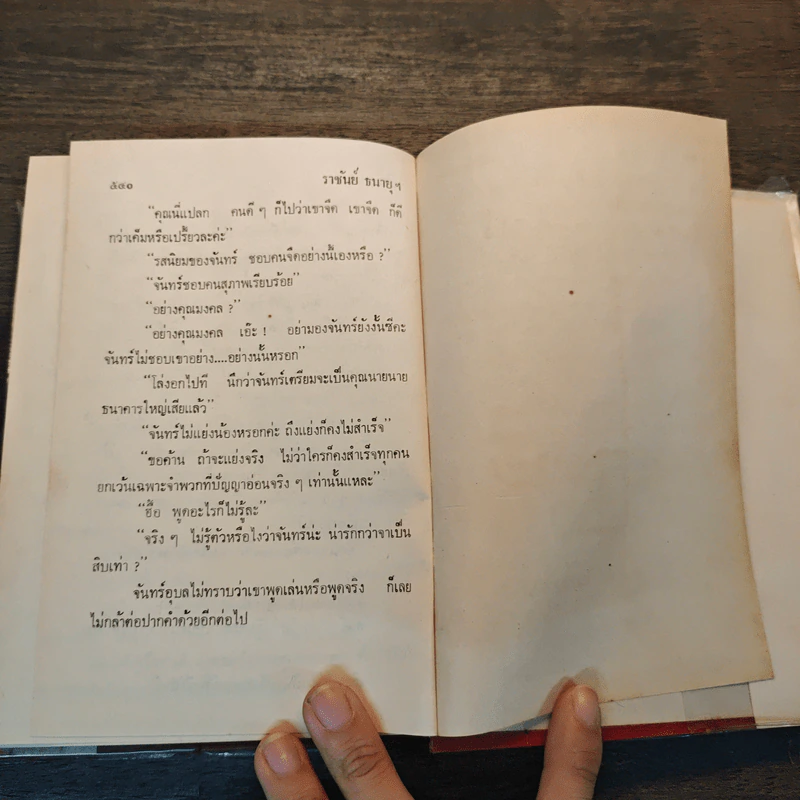 ๕๔๐ ราชันย์ ธนายุ ฯ
“คุณนี่แปลก คนดี ๆ ก็ไปว่าเขาจืด เขาจืด ก็ดี
กว่าเค็มหรือเปรี้ยวละค่ะ”
“รสนิยมของจันทร์ ชอบคนจืดอย่างนี้เองหรือ ?”
“จันทร์ชอบคนสุภาพเรียบร้อย”
“อย่างคุณมงคล ?”
“อย่างคุณมงคล เอ๊ะ ! อย่ามองจันทร์ยังงั้นซีคะ
จันทร์ไม่ชอบเขาอย่าง....อย่างนั้นหรอก”
“โล่งอกไปที นึกว่าจันทร์เตรียมจะเป็นคุณนายนาย
ธนาคารใหญ่เสียแล้ว”
“จันทร์ไม่แย่งน้องหรอกค่ะ ถึงแย่งก็คงไม่สำเร็จ”
“ขอค้าน ถ้าจะแย่งจริง ไม่ว่าใครก็คงสำเร็จทุกคน
ยกเว้นเฉพาะจำพวกที่ปัญญาอ่อนจริง ๆ เท่านั้นแหละ”
“ฮื้อ พูดอะไรก็ไม่รู้ละ”
“จริง ๆ ไม่รู้ตัวหรือไงว่าจันทร์น่ะ น่ารักกว่าจาเป็น
สิบเท่า ?”
จันทร์อุบลไม่ทราบว่าเขาพูดเล่นหรือพูดจริง ก็เลย
ไม่กล้าต่อปากคำด้วยอีกต่อไป